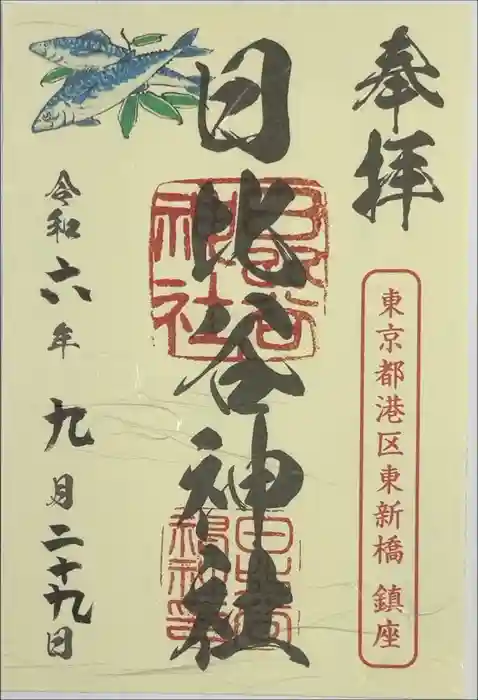 奉拝
東京都港区東新橋 鎮座
日比谷神社
令和六年九月二十九日